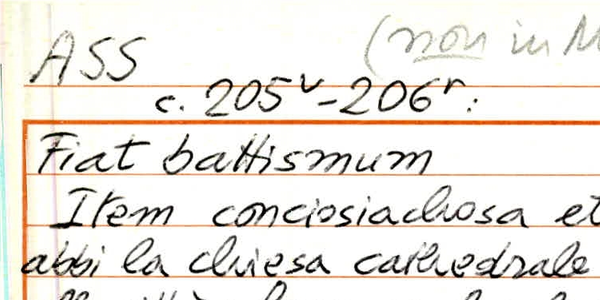 ASS (non in M
c. 205v-206r:
Fiat battismum
Item conciosiachosa et
abbi la chiesa cathedrale